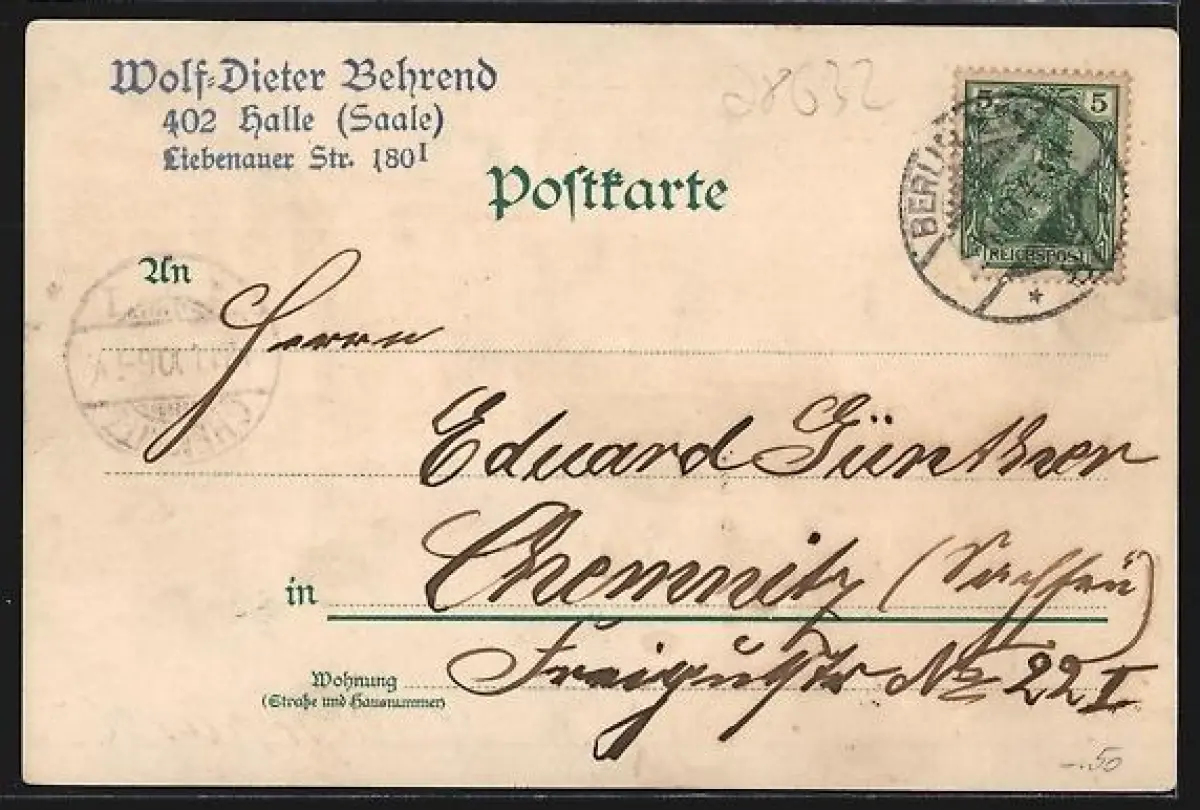 Wolf-Dieter Behrend
402 Halle (Saale)
Liebenauer Str. 180 I
28632
5 5
REICHSPOST
BERLIN
Postkarte
An
Herrn
CHEMNITZ
Eduard Günther
in Chemnitz (Sachsen)
Wohnung
(Straße und Hausnummer)
No 22 I
-.50